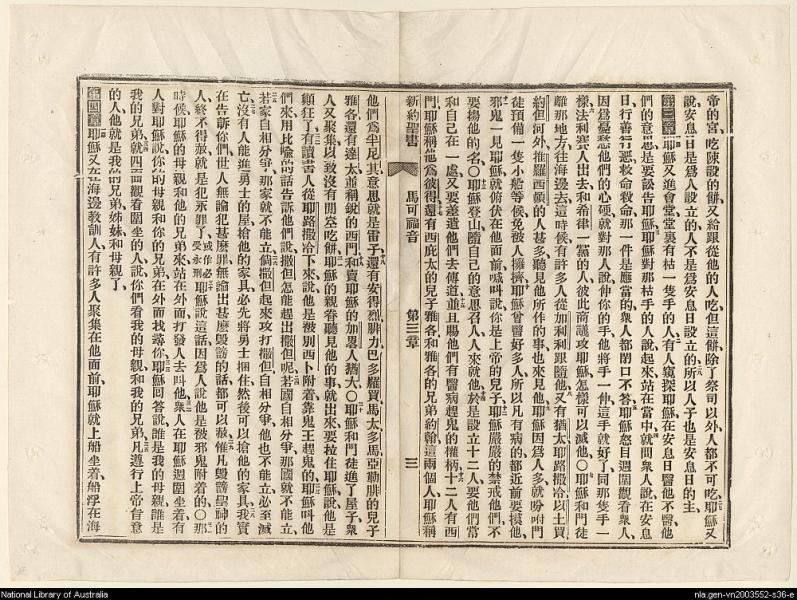 帝的宮、吃陳設的餅、又給跟從他的人吃、但這餅除了祭司以外、人都不可吃、耶穌又
說、安息日是爲人設立的、人不是爲安息日設立的、所以人子也是安息日的主
第三章耶穌又進會堂、堂裏有枯一隻手的人、有人窺探耶穌在安息日醫他不醫、他
們的意思是要訟告耶穌、耶穌對那枯手的人說、起來站在當中、就問衆人說、在安息
日行善行惡、救命殺命、那一件是應當的、衆人都閉口不答、耶穌怒目週圍觀看衆人、
因爲憂愁他們的心硬、就對那人說、伸你的手、他將手一伸、這手就好了、同那隻手一
樣、法利賽人出去、和希律一黨的人彼此商議攻耶穌、怎樣可以滅他、〇耶穌和門徒
離那地方、往海邊去、這時候有許多人從加利利跟隨他、又有猶太耶路撒冷以土買
約但河外推羅西頓的人甚多、聽見他所作的事、也來見他、耶穌因爲人多、就吩咐門
徒預備一隻小船等候、免被人擁擠、耶穌曾醫好多人、所以凡有病的、都近前要摸他、
邪鬼一見耶穌、就俯伏在他面前喊叫說、你是上帝的兒子、耶穌嚴嚴的禁戒他們、不
要揚他的名、〇耶穌登山、隨自己的意思召人、人來就他、於是設立十二人、要他們常
和自己在一處、又要差遣他們去傳道、並且賜他們有醫病趕鬼的權柄、十二人有西
門、耶穌稱他爲彼得、還有西庇太的兒子雅各、和雅各的兄弟約翰、這兩個人、耶穌稱
新約聖書 馬可福音 第三章 三
他們爲半尼其、意思就是雷子、還有安得烈腓力巴多羅買馬太多馬亞勒腓的兒子
雅各、還有達太、並稱銳的西門、和賣耶穌的加畧人猶大、〇耶穌和門徒進了屋子、衆
人又聚集、以致沒有閒空吃餅、耶穌的親眷聽見他的事、就出來要拉住耶穌、說他是
顛狂了、有讀書人從耶路撒冷下來、說他是被別西卜附着、靠鬼王趕鬼的、耶穌叫他
們來、用比喻的話告訴他們說、撒但怎能趕出撒但呢、若國自相分爭、那國就不能立、
若家自相分爭、那家就不能立、倘撒但起來攻打撒但自相分爭、他也不能立、必至滅
亡、沒有人能進勇士的屋搶他的家具、必先將勇士捆住、然後可以搶他的家具、我實
在告訴你們、世人無論犯甚麼罪、無論出甚麼毀謗的話、都可以赦、惟凡毀謗聖神的
人、終不得赦、就是犯永罪了、或作必受永刑 耶穌說這話、因爲人說他是被邪鬼附着的、〇那
時候耶穌的母親和他的兄弟來、站在外面、打發人去叫他、衆人在耶穌週圍坐着、有
人對耶穌說、你的母親和你的兄弟、在外面找尋你、耶穌回答說、誰是我的母親、誰是
我的兄弟、就四面觀看圍坐的人說、你們看我的母親和我的兄弟、凡遵行上帝旨意
的人、他就是我的兄弟姊妹和母親了
第四章耶穌又在海邊教訓人、有許多人聚集在他面前、耶穌就上船坐着、船浮在海
National Library of Australia
nla.gen-vn2003552-s36-e